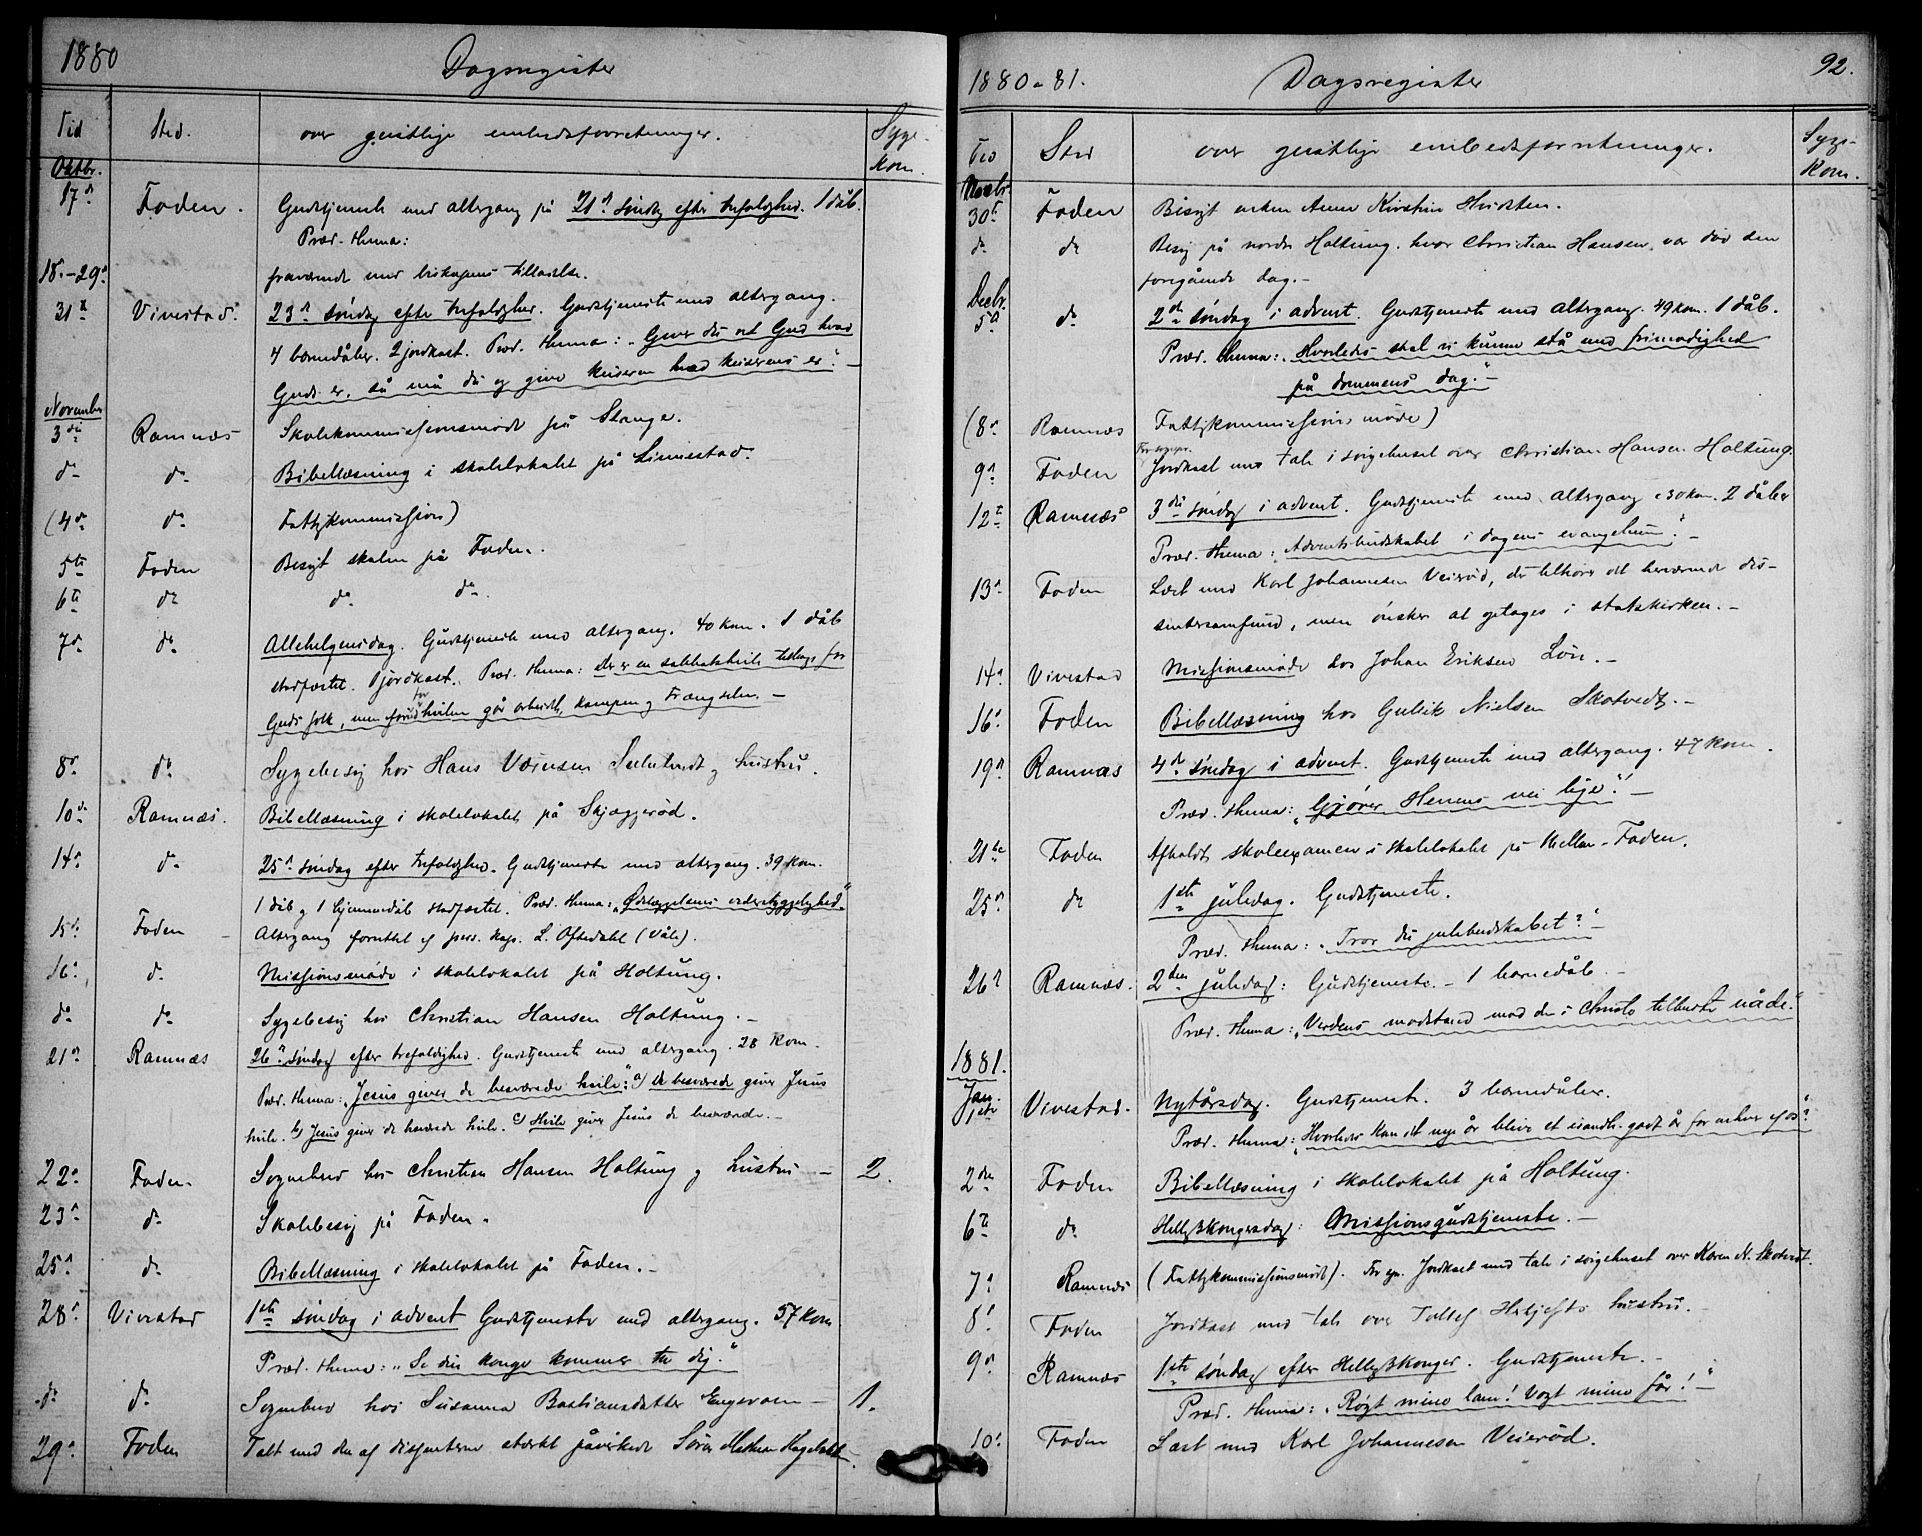 1880
Dagsregister
Tid Sted. over geistlige embedsforretninger. Syge-
kom.
Oktbr.
17de Foden. Gudstjeneste med altergang på 21de søndag efter trefoldighed. 1 dåb.
Præd. thema:
18.-29de fraværende med biskopens tilladelse.
31te Vivestad. 23de søndag efter trefoldighed. Gudstjeneste med altergang.
4 barnedåber. 2 jordkast. Præd. thema: "Giver du et Gud hvad
Guds er, så må du og give keiseren hvad keiserens er". -
November
3die Ramnæs Skolekommissionsmøde på Stange.
do do Bibellæsning i skolelokalet på Linnestad.
(4de do Fattigkommission)
5te Foden Besøgt skolen på Foden.
6te do do do.
7de do Allehelgensdag. Gudstjeneste med altergang. 40 kom. 1 dåb
stadfæstet. Jordkast. Præd. thema: Der er en sabbatshvile tilbage for
Guds folk, men forud for hvilen går arbeidet, kampen og Trængselen. -
8de do Sygebesøg hos Hans og hustru.
10de Ramnæs. Bibellæsning i skolelokalet på Skjæggerød.
14de do 25de søndag efter trefoldighed. Gudstjeneste med altergang. 39 kom.
1 dåb og 1 hjemmedåb stadfæstet. Præd. thema: "Ødelæggelsens vederstyggelighed."
15de Foden - Altergang forrettet af pers. kap. L. Oftedahl (Våle).
16de do Missionsmøde i skolelokalet på Holtung.
do do Sygebesøg hos Christian Hansen Holtung. -
21de Ramnæs 26de søndag efter trefoldighed. Gudstjeneste med altergang. 28 kom.
Præd. thema: "Jesus giver de besværede hvile": a) De besværede giver Jesus
hvile. b) Jesus giver de besværede hvile. c) Hvile giver Jesus de besværede. -
22de Foden. Sognebud hos Christian Hansen Holtung og hustru - 2.
23de do Skolebesøg på Foden.
25de do Bibellæsning i skolelokalet på Foden. -
28de Vivestad 1ste søndag i advent Gudstjeneste med altergang. 57 kom
Præd. thema: "Se din konge kommer til dig."
do do Sognebud hos Susanna Bastiansdatter - 1.
29de Foden Talt med den af dissenterne stærkt påvirkede Søren
1880-81. Dagsregister 92.
Tid Sted over geistlige embedsforretninger. Syge-
kom.
Novbr.
30te Foden Besøgt enken Anne Kirstine Hvidsten.
do do Besøg på nordre Holtung, hvor Christian Hansen var død den
foregående dag. -
Decbr.
5te do 2den søndag i advent. Gudstjeneste med altergang. 49 kom. 1 dåb.
Præd. thema: "Hvorledes skal vi kunne stå med frimodighed
på dommens dag." -
(8de Ramnæs Fattigkommissionsmøde)
9de Foden Jordkast med tale i sørgehuset over Christian Hansen Holtung.
12te Ramnæs 3die søndag i advent. Gudstjeneste med altergang c 30 kom. 2 dåber
Præd. thema: "Adventsbudskabet i dagens evangelium". -
13de Foden Læst med Karl Johannesen Veierød, der tilhører det herværende dis-
sentersamfund, men ønsker at optages i statskirken. -
14de Vivestad Missionsmøde hos Johan Eriksen Løn. -
16de Foden Bibellæsning hos Gulik Nielsen Skotvedt. -
19de Ramnæs 4de søndag i advent. Gudstjeneste med altergang. 47 kom.
Præd. thema: "Gjører Herrens vei lige." -
21de Foden Afholdt skoleexamen i skolelokalet på Mellom-Foden.
25de do 1ste juledag. Gudstjeneste.
Præd. thema: "Tror du julebudskabet?" -
26de Ramnæs. 2den juledag: Gudstjeneste. - 1 barnedåb. -
Præd. thema: "Verdens modstand mod den i Christo tilbudte nåde."
1881.
Jan.
1ste Vivestad. Nytårsdag. Gudstjeneste. 3 barnedåber.
Præd. thema: "Hvorledes kan det nye år blive et i sandh. godt år for enhver af os?"
2den Foden Bibellæsning i skolelokalet på Holtung.
6te do Helligtrekongersdag: Missionsgudstjeneste. -
7de Ramnæs (Fattigkommissionsmøde). Jordkast med tale i sørgehuset over Karen N. Skotvedt.
8de Foden Jordkast med tale over hustru. -
9de Ramnæs 1ste søndag efter Helligtrekonger. Gudstjeneste. -
Præd. thema: "Røgt mine lam! Vogt mine får!" -
10de Foden Læst med Karl Johannesen Veierød.